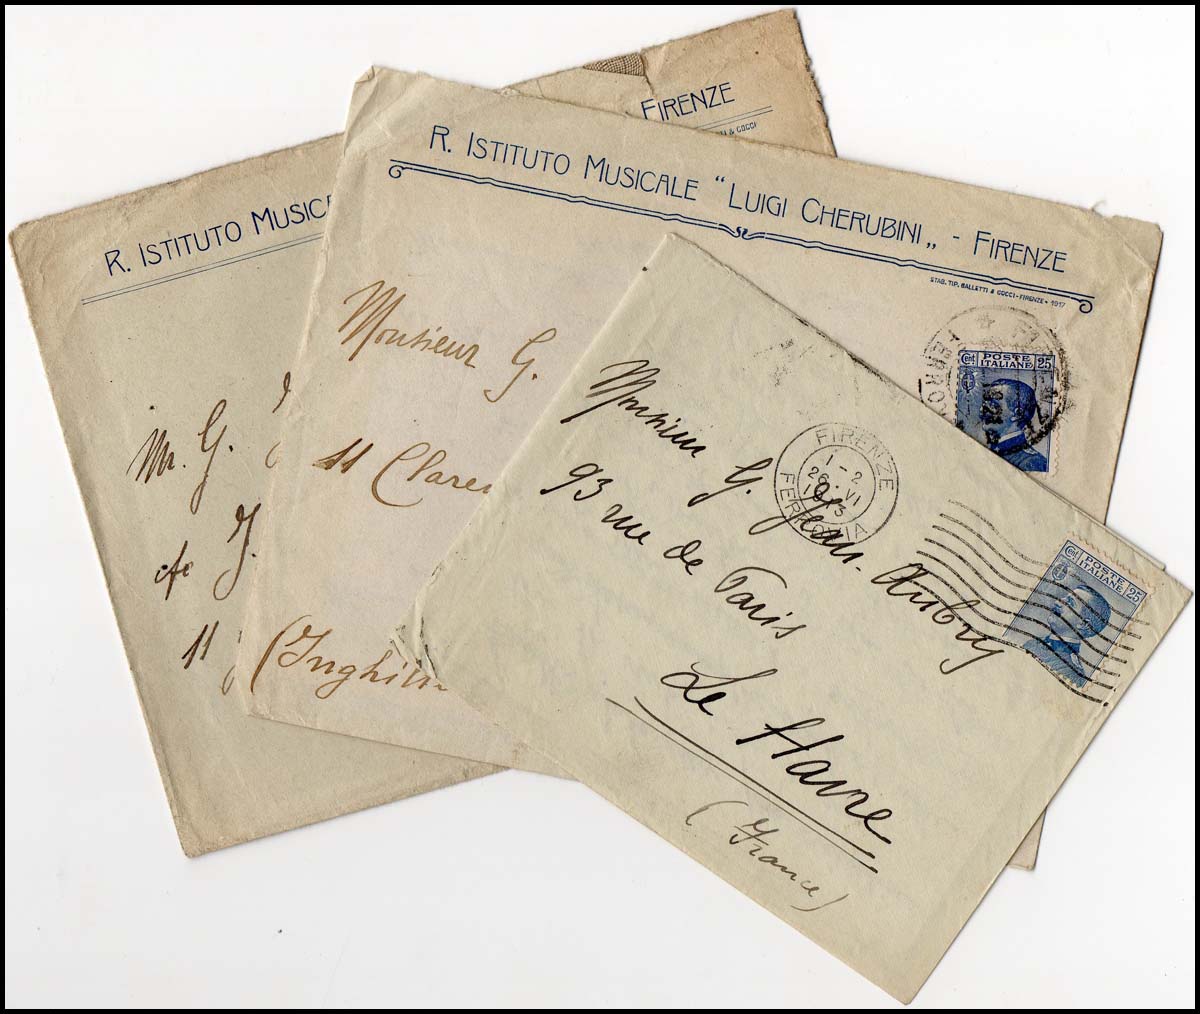 FIRENZE
& COCCI
R. ISTITUTO MUSIC
Mr. G.
c/o J.
11
R. ISTITUTO MUSICALE "LUIGI CHERUBINI„ - FIRENZE
STAB. TIP. BALLETTI & COCCI - FIRENZE - 1917
Cent. POSTE ITALIANE 25
FERRO
Monsieur G.
11 Claren
(Inghil
FIRENZE
1-2
26·VI
1913
FERROVIA
Cent. POSTE ITALIANE 25
Monsieur G. Jean-Aubry
93 rue de Paris
Le Havre
(France)